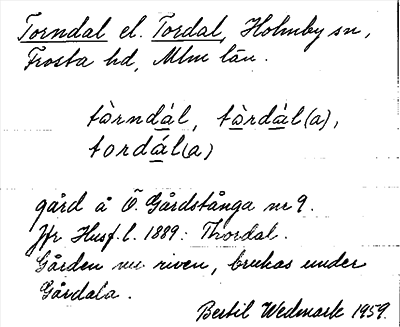 Torndal el. Tordal, Holmby sn,
Frosta hd, Mlm län.
tòrndál, tòrdál(a),
tordál(a)
gård å Ö. Gårdstånga nr 9.
Jfr Husf.l. 1889: Thordal.
Gården nu riven, brukas under
Gårdala.
Bertil Wedmark 1959.